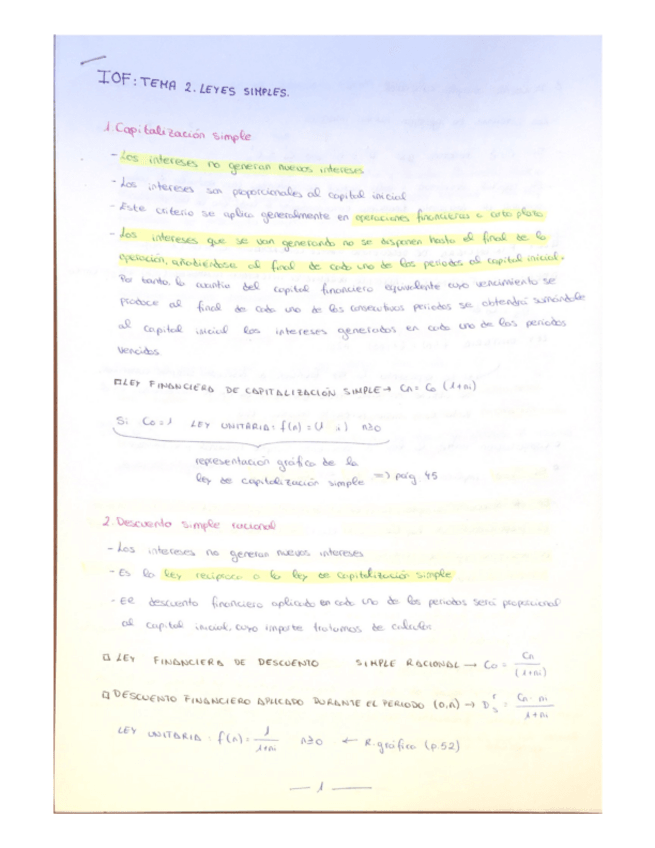 IOF: TEMA 2. LEYES SIMPLES.
1. Capitalización simple
- Los intereses no generan nuevos intereses
- Los intereses son proporcionales al capital inicial
- Este criterio se aplica generalmente en operaciones financieras a corto plazo
- Los intereses que se van generando no se disponen hasta el final de la
operación, añadiéndose al final de cada uno de los periodos al capital inicial.
Por tanto, la cuantía del capital financiero equivalente cuyo vencimiento se
produce al final de cada uno de los consecutivos periodos se obtendrá sumándole
al capital inicial los intereses generados en cada uno de los periodos
vencidos.
□ LEY FINANCIERA DE CAPITALIZACIÓN SIMPLE → Cn = Co (1+ni)
Si Co = 1 LEY UNITARIA: f(n) = (1 i) n≥0
representación gráfica de la
ley de capitalización simple => pág. 45
2. Descuento simple racional
- Los intereses no generan nuevos intereses
- Es la ley recíproca a la ley de capitalización simple
- El descuento financiero aplicado en cada uno de los periodos será proporcional
al capital inicial, cuyo importe tratamos de calcular
□ LEY FINANCIERA DE DESCUENTO SIMPLE RACIONAL → Co = Cn / (1+ni)
□ DESCUENTO FINANCIERO APLICADO DURANTE EL PERIODO (0,n) → D_s^r = Cn · ni / 1+ni
LEY UNITARIA: f(n) = 1 / 1+ni n≥0 ← R. gráfica (p.52)
— 1 —